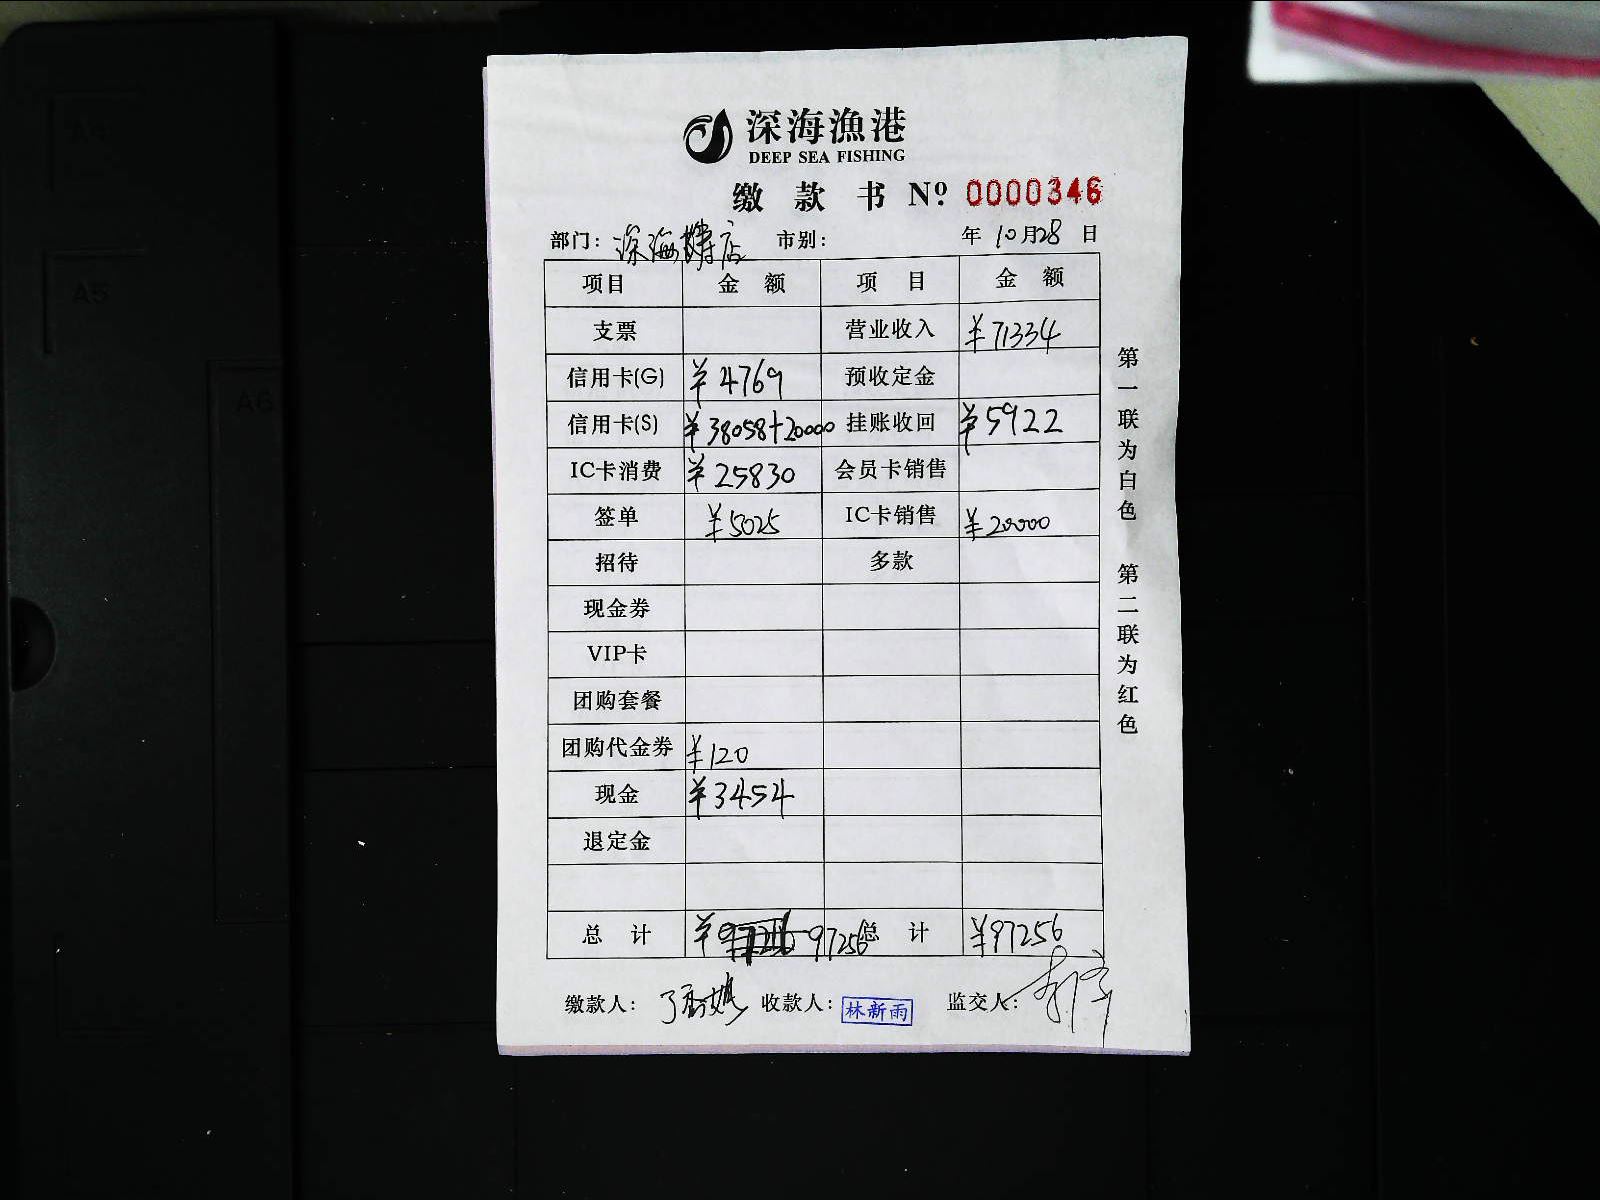 深海漁港
DEEP SEA FISHING
缴款书 Nº 0000346
部门: 深海 店 市别: 年 10月28日
项目 金额 项目 金额
支票 营业收入 ¥71334
信用卡(G) ¥4769 预收定金
信用卡(S) ¥38058+20000 挂账收回 ¥5922
IC卡消费 ¥25830 会员卡销售
签单 ¥5025 IC卡销售 ¥20000
招待 多款
现金券
VIP卡
团购套餐
团购代金券 ¥120
现金 ¥3454
退定金
总计 ¥ 97256 总计 ¥97256
缴款人: 收款人: 林新雨 监交人:
第一联为白色 第二联为红色
A4
A5
A6